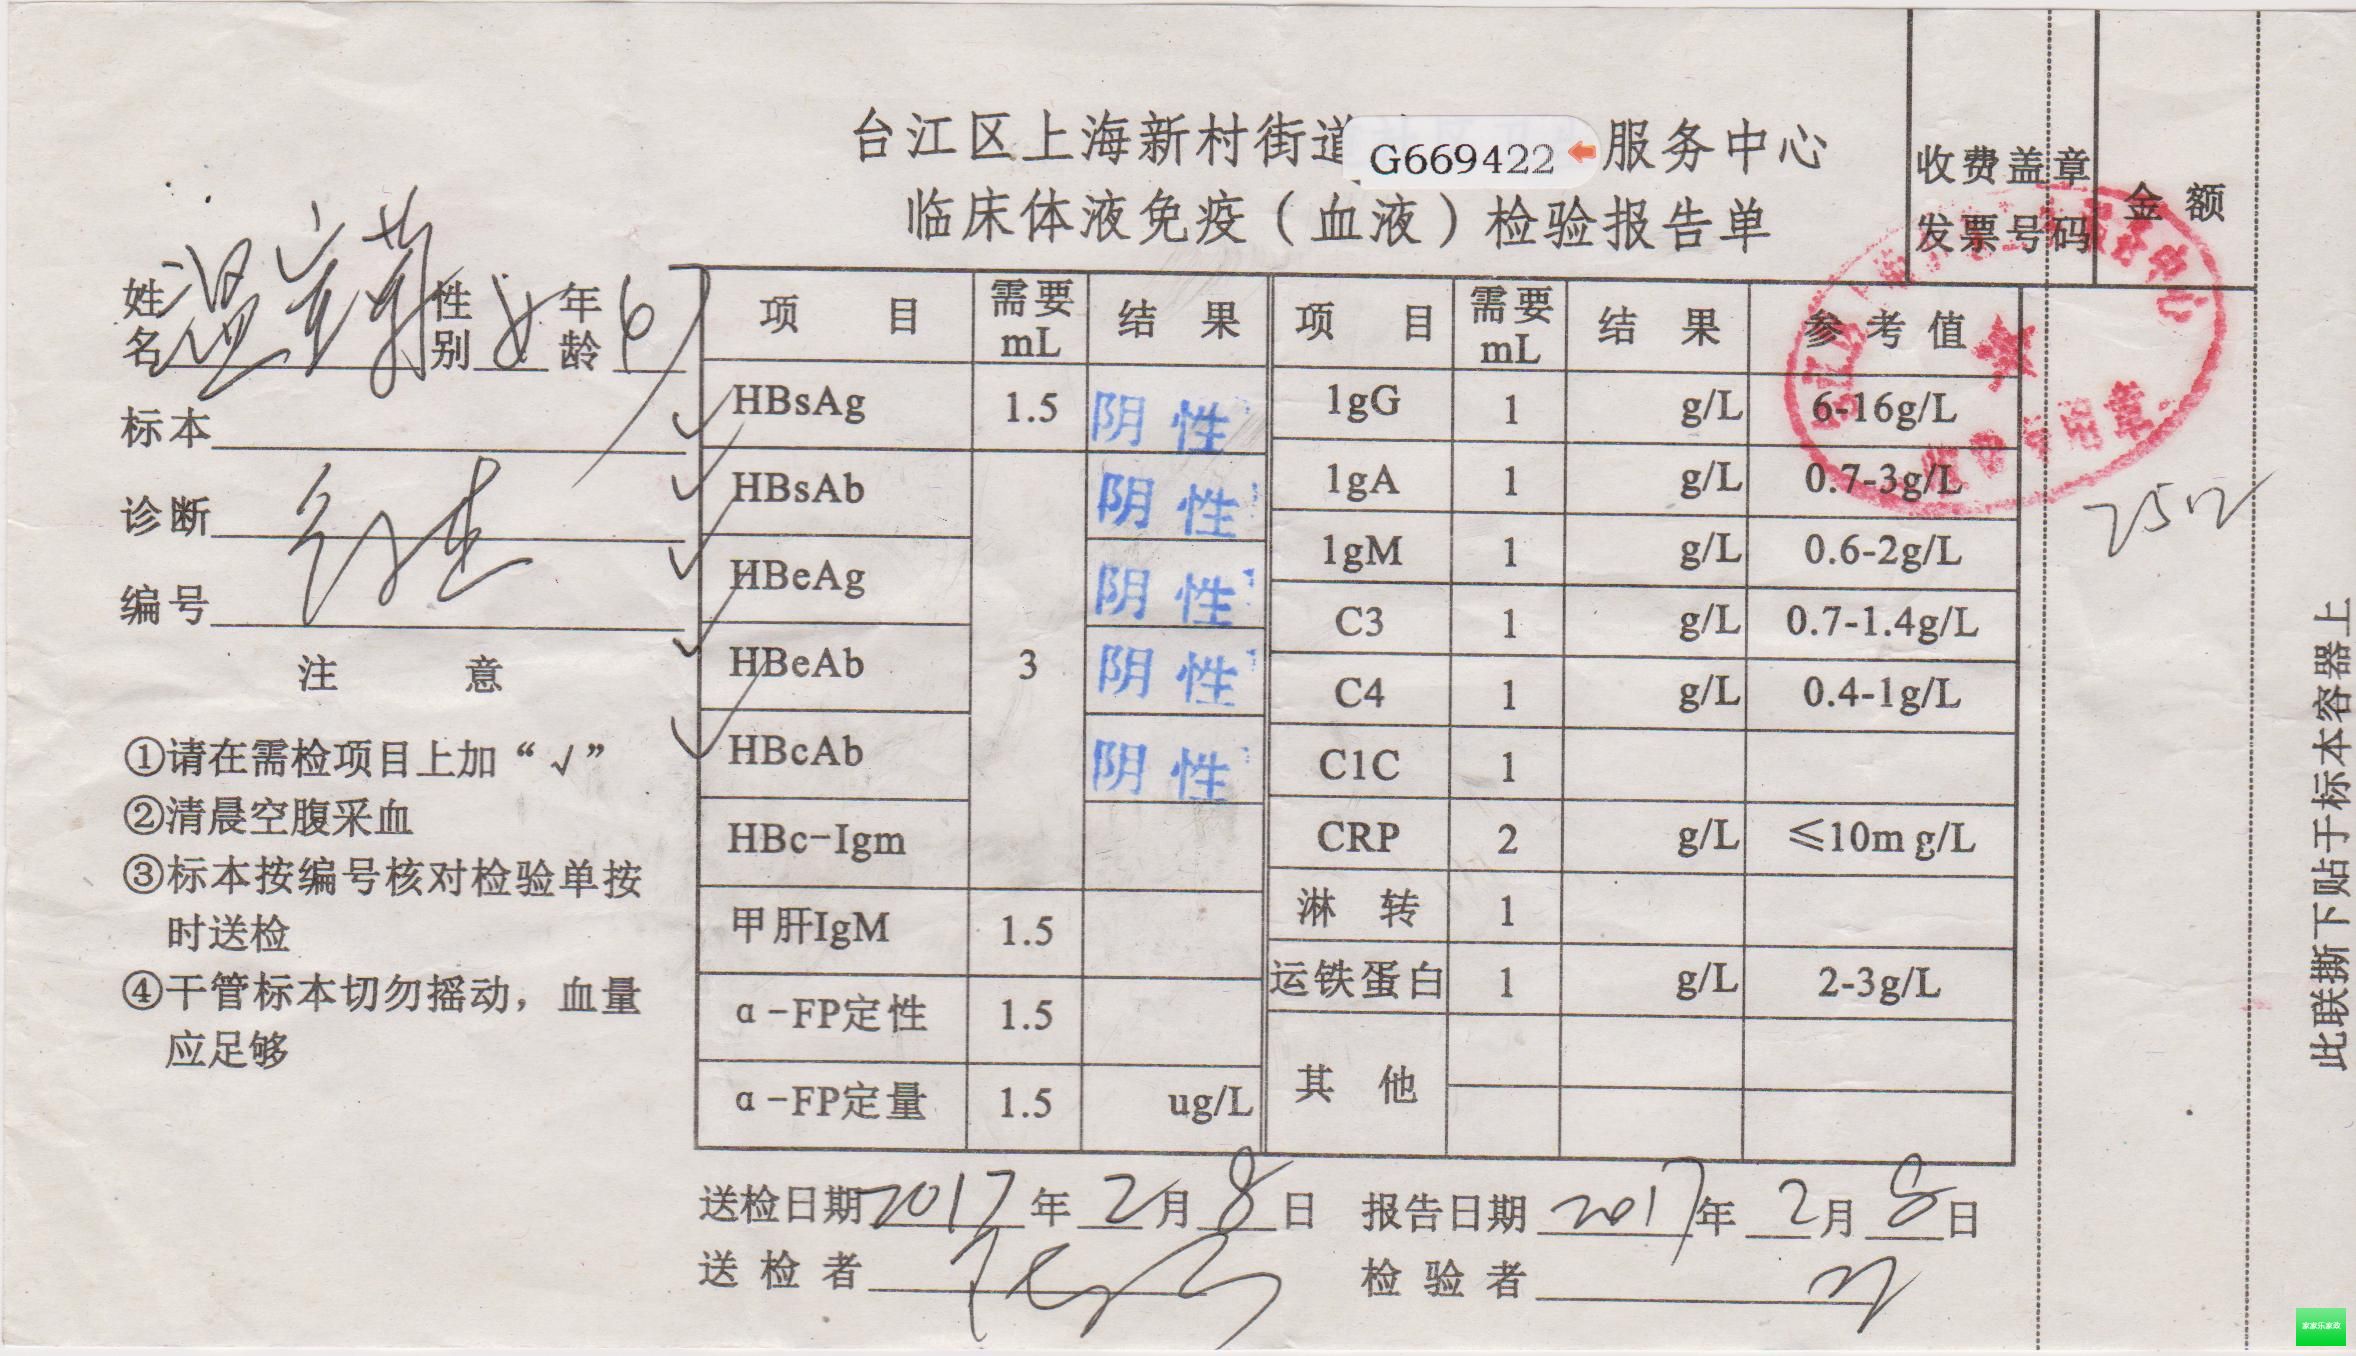 台江区上海新村街道 服务中心
G669422
临床体液免疫（血液）检验报告单
收费盖章
发票号码
金额
姓名 性别 年龄
标本
诊断
编号
注 意
①请在需检项目上加“√”
②清晨空腹采血
③标本按编号核对检验单按
时送检
④干管标本切勿摇动，血量
应足够
项 目 需要mL 结 果 项 目 需要mL 结 果 参考值
HBsAg 1.5 阴性 1gG 1 g/L 6-16g/L
HBsAb 阴性 1gA 1 g/L 0.7-3g/L
HBeAg 阴性 1gM 1 g/L 0.6-2g/L
HBeAb 3 阴性 C3 1 g/L 0.7-1.4g/L
C4 1 g/L 0.4-1g/L
HBcAb 阴性 C1C 1
HBc-Igm CRP 2 g/L ≤10mg/L
甲肝IgM 1.5 淋 转 1
α-FP定性 1.5 运铁蛋白 1 g/L 2-3g/L
α-FP定量 1.5 ug/L 其 他
送检日期 2017年2月8日 报告日期 2017年2月8日
送检者 检验者
此联撕下贴于标本容器上
家家乐家政